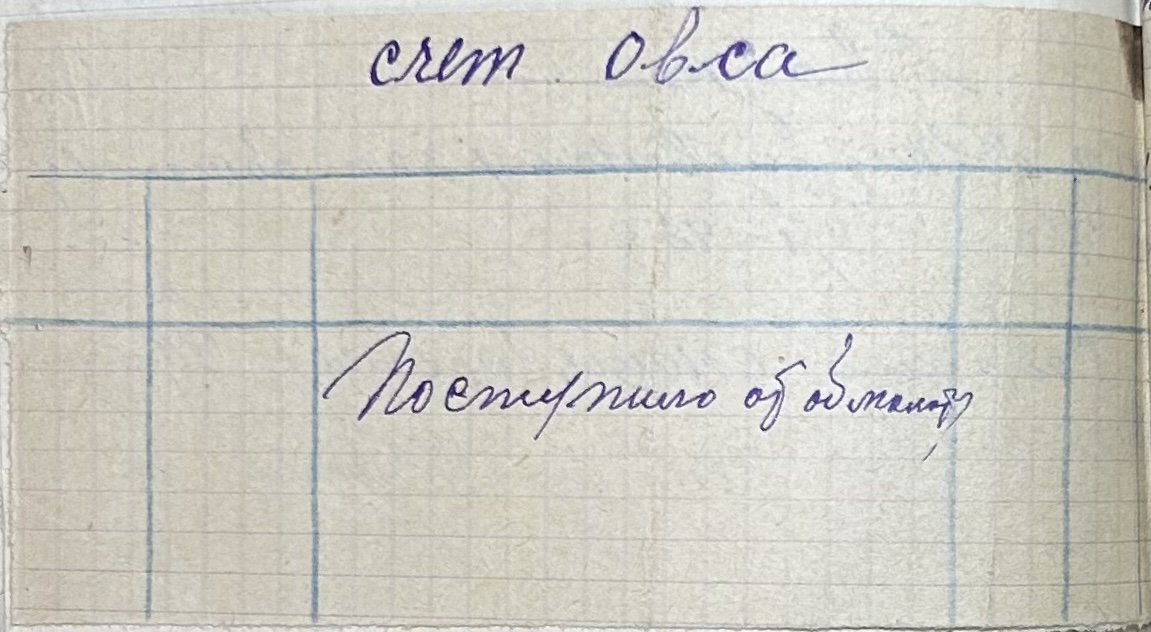 счет овса
Поступило от обмолота